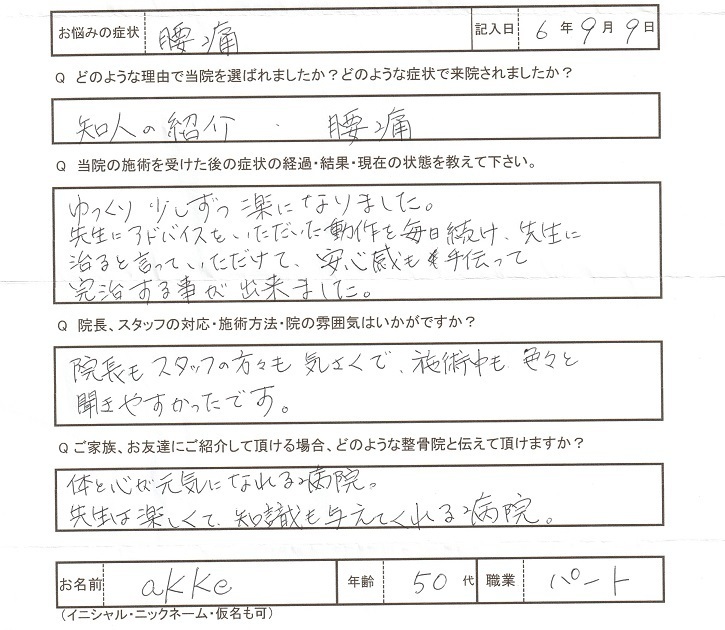 お悩みの症状 腰痛 記入日 6年9月9日
Q どのような理由で当院を選ばれましたか？どのような症状で来院されましたか？
知人の紹介 ・ 腰痛
Q 当院の施術を受けた後の症状の経過・結果・現在の状態を教えて下さい。
ゆっくり少しずつ楽になりました。
先生にアドバイスをいただいた動作を毎日続け、先生に
治ると言っていただけて、安心感も手伝って
完治する事が出来ました。
Q 院長、スタッフの対応・施術方法・院の雰囲気はいかがですか？
院長もスタッフの方々も気さくで、施術中も色々と
聞きやすかったです。
Q ご家族、お友達にご紹介して頂ける場合、どのような整骨院と伝えて頂けますか？
体と心が元気になれる病院。
先生は楽しくて、知識も与えてくれる病院。
お名前 akke 年齢 50代 職業 パート
（イニシャル・ニックネーム・仮名も可）